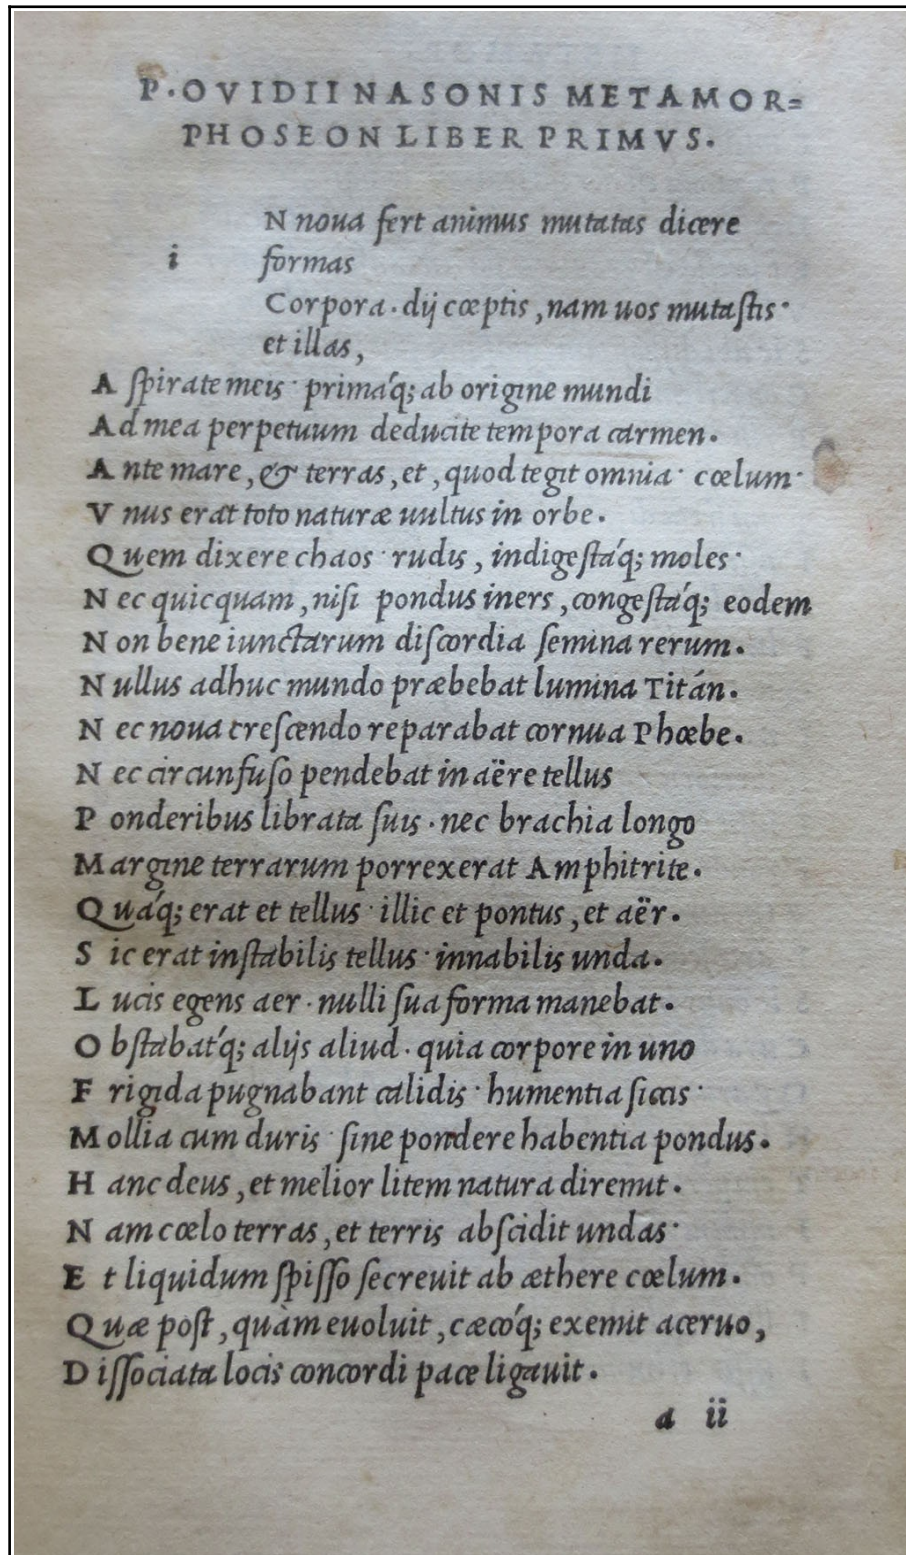 P. OVIDII NASONIS METAMOR=
PHOSEON LIBER PRIMVS.
N noua fert animus mutatas dicere
i formas
Corpora. dij cœptis, nam uos mutaſtis·
et illas,
A ſpirate meis· primáq; ab origine mundi
Ad mea perpetuum deducite tempora carmen.
A nte mare, & terras, et, quod tegit omnia· cœlum·
V nus erat toto naturæ uultus in orbe.
Quem dixere chaos· rudis, indigeſtáq; moles·
N ec quicquam, niſi pondus iners, congeſtáq; eodem
N on bene iunctarum diſcordia ſemina rerum.
N ullus adhuc mundo præbebat lumina Titán.
N ec noua creſcendo reparabat cornua Phœbe.
N ec circunfuſo pendebat in aëre tellus
P onderibus librata ſuis. nec brachia longo
Margine terrarum porrexerat Amphitrite.
Quáq; erat et tellus· illic et pontus, et aër.
S ic erat inſtabilis tellus· innabilis unda.
L ucis egens aer. nulli ſua forma manebat.
O bſtabat'q; alijs aliud. quia corpore in uno
F rigida pugnabant calidis· humentia ſiccis·
Mollia cum duris· ſine pondere habentia pondus.
H anc deus, et melior litem natura diremit.
N am cœlo terras, et terris abſcidit undas·
E t liquidum ſpiſſo ſecreuit ab æthere cœlum.
Quæ poſt, quàm euoluit, cæcóq; exemit aceruo,
D iſſociata locis concordi pace ligauit.
a ii